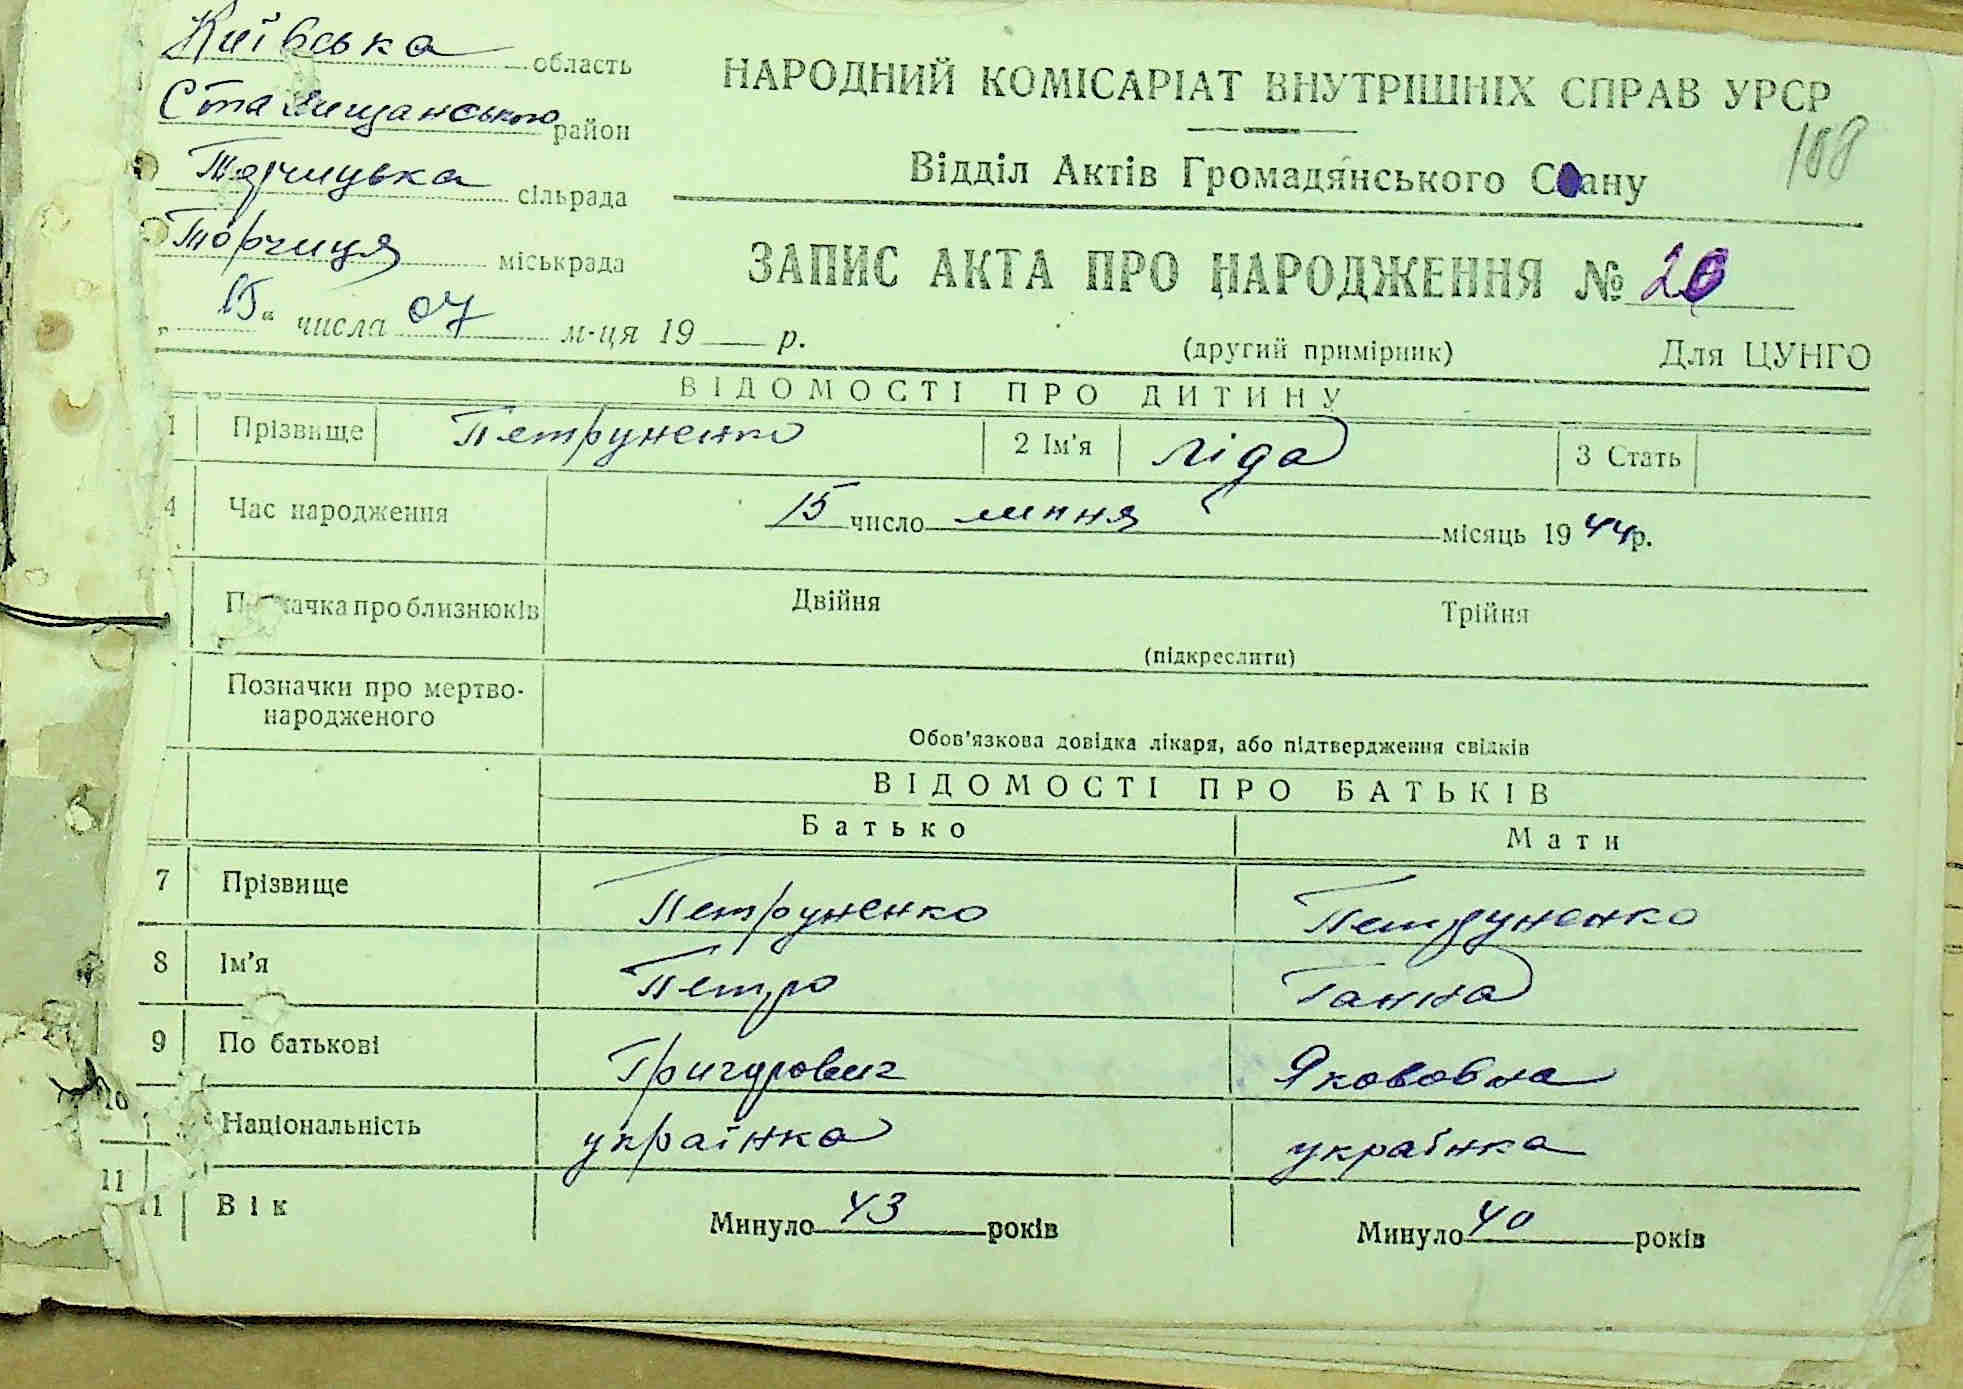 Київська область
НАРОДНИЙ КОМІСАРІАТ ВНУТРІШНІХ СПРАВ УРСР
Ставищанського район
108
Відділ Актів Громадянського Стану
Торчицька сільрада
Торчиця міськрада
ЗАПИС АКТА ПРО НАРОДЖЕННЯ № 20
„15“ числа 07 м-ця 19 р.
(другий примірник) Для ЦУНГО
ВІДОМОСТІ ПРО ДИТИНУ
1 Прізвище Петруненко 2 Ім'я Ліда 3 Стать
4 Час народження 15 число липня місяць 1944р.
Позначка про близнюків Двійня Трійня
(підкреслити)
Позначки про мертво-
народженого
Обов'язкова довідка лікаря, або підтвердження свідків
ВІДОМОСТІ ПРО БАТЬКІВ
Батько Мати
7 Прізвище Петруненко Петруненко
8 Ім'я Петро Ганна
9 По батькові Григорович Якововна
10 Національність українка українка
11
11 Вік Минуло 43 років Минуло 40 років